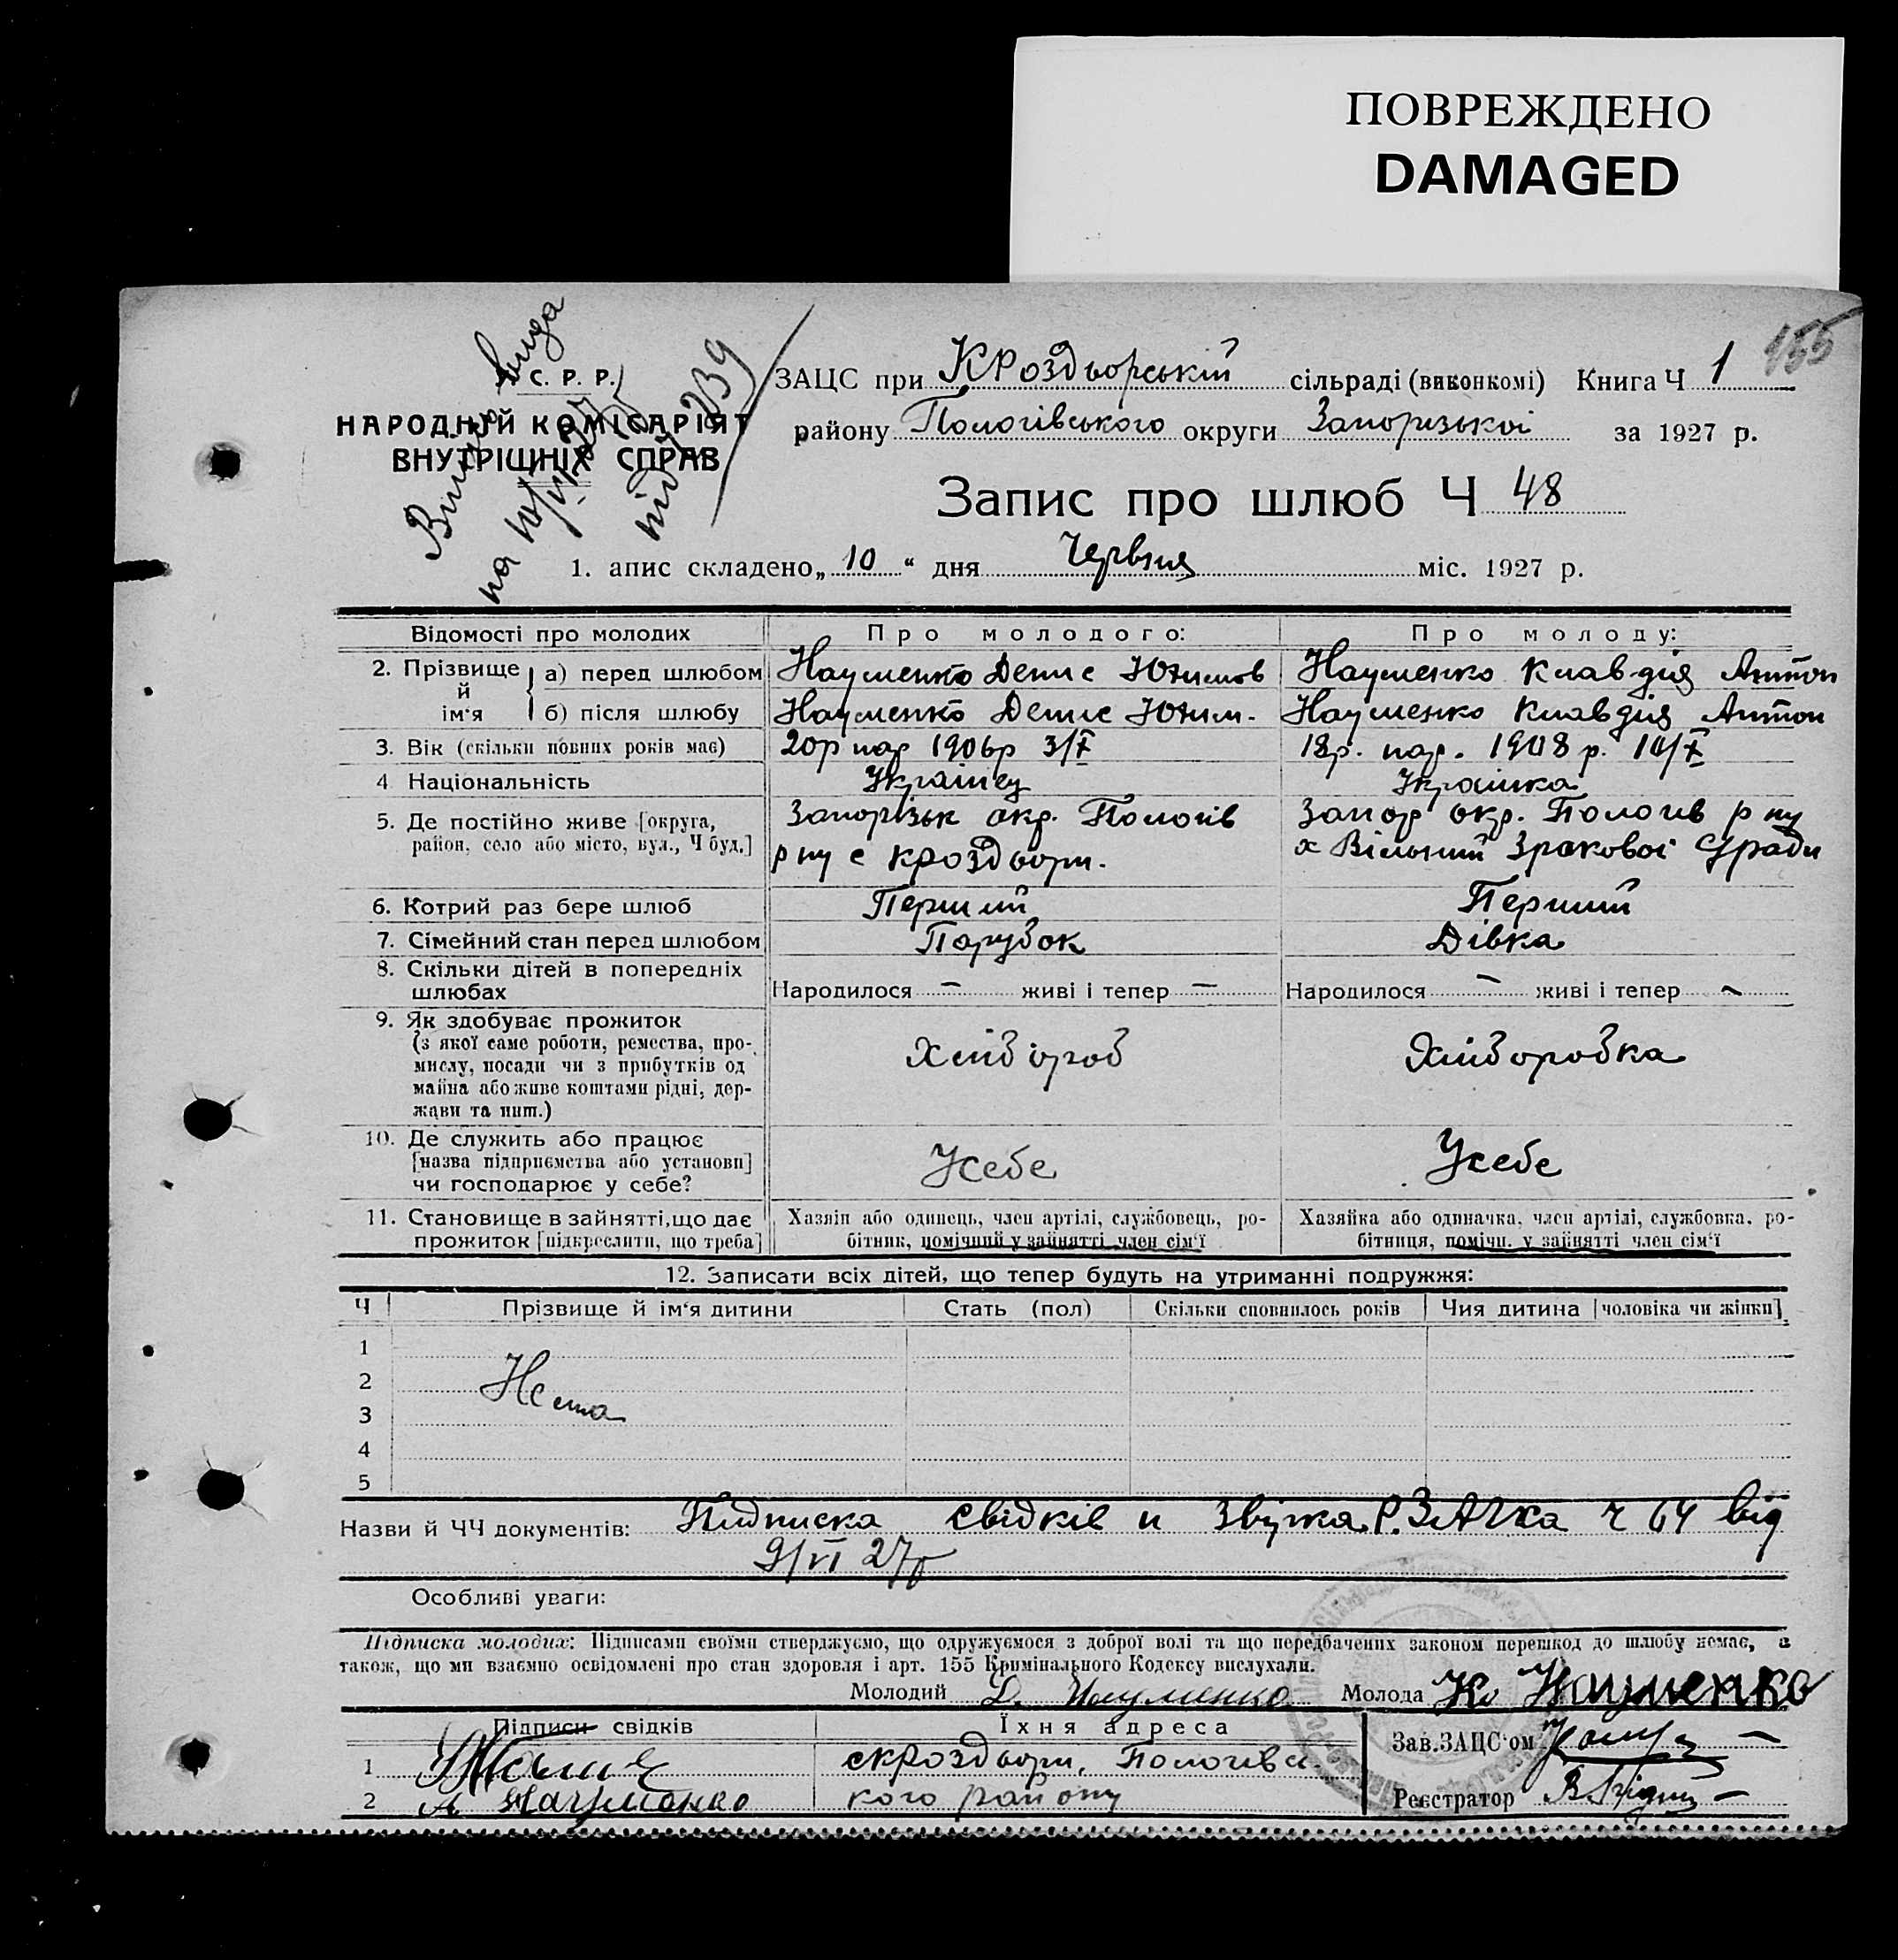 ПОВРЕЖДЕНО
DAMAGED
155
С. Р. Р.
НАРОДНІЙ КОМІСАРІЯТ
ВНУТРІШНІХ СПРАВ
ЗАЦС при КРоздьорській сільраді (виконкомі) Книга Ч 1
району Пологівського округи Запорізької за 1927 р.
Запис про шлюб Ч 48
1. апис складено „ 10 “ дня Червня міс. 1927 р.
Відомості про молодих Про молодого: Про молоду:
2. Прізвище й ім‘я
а) перед шлюбом Науменко Денис Юхимов Науменко Клавдія Антон
б) після шлюбу Науменко Денис Юхим. Науменко Клавдія Антон
3. Вік (скільки повних років має) 20р нар 1906р 3/X 18р. нар. 1908 р. 10/X
4 Національність Українец Українка
5. Де постійно живе [округа, район, село або місто, вул., Ч буд.]
Запорізьк окр. Пологів
р ну с кроздьори.
Запор окр. Пологів р ну
х Вільний Зраковоі Сради
6. Котрий раз бере шлюб Перший Перший
7. Сімейний стан перед шлюбом Парубок Дівка
8. Скільки дітей в попередніх
шлюбах Народилося — живі і тепер — Народилося — живі і тепер —
9. Як здобуває прожиток
(з якої саме роботи, ремества, про-
мислу, посади чи з прибутків од
майна або живе коштами рідні, дер-
жави та инш.)
Хлібороб Хліборобка
10. Де служить або працює
[назва підприємства або установи]
чи господарює у себе?
Усебе Усебе
11. Становище в зайнятті, що дає
прожиток [підкреслити, що треба]
Хазяїн або одинець, член артілі, службовець, ро-
бітник, помічний у зайнятті член сім‘ї
Хазяйка або одиначка, член артілі, службовка, ро-
бітниця, помічн. у зайнятті член сім‘ї
12. Записати всіх дітей, що тепер будуть на утриманні подружжя:
Ч Прізвище й ім‘я дитини Стать (пол) Скільки сповнилось років Чия дитина [чоловіка чи жінки]
1
2 Нема
3
4
5
Назви й ЧЧ документів: Підписка свідків и Звізка Р.ЗАГСа ч 64 від
9/VI 27р
Особливі уваги:
Підписка молодих: Підписами своїми стверджуємо, що одружуємося з доброї волі та що передбачених законом перешкод до шлюбу немає, а
також, що ми взаємно освідомлені про стан здоровля і арт. 155 Кримінального Кодексу вислухали.
Молодий Д. Науменко Молода Кл Науменко
Підписи свідків Їхня адреса
1 скроздьори, Пологівсь
2 А Науменко кого району
Зав. ЗАЦС‘ом
Реєстратор